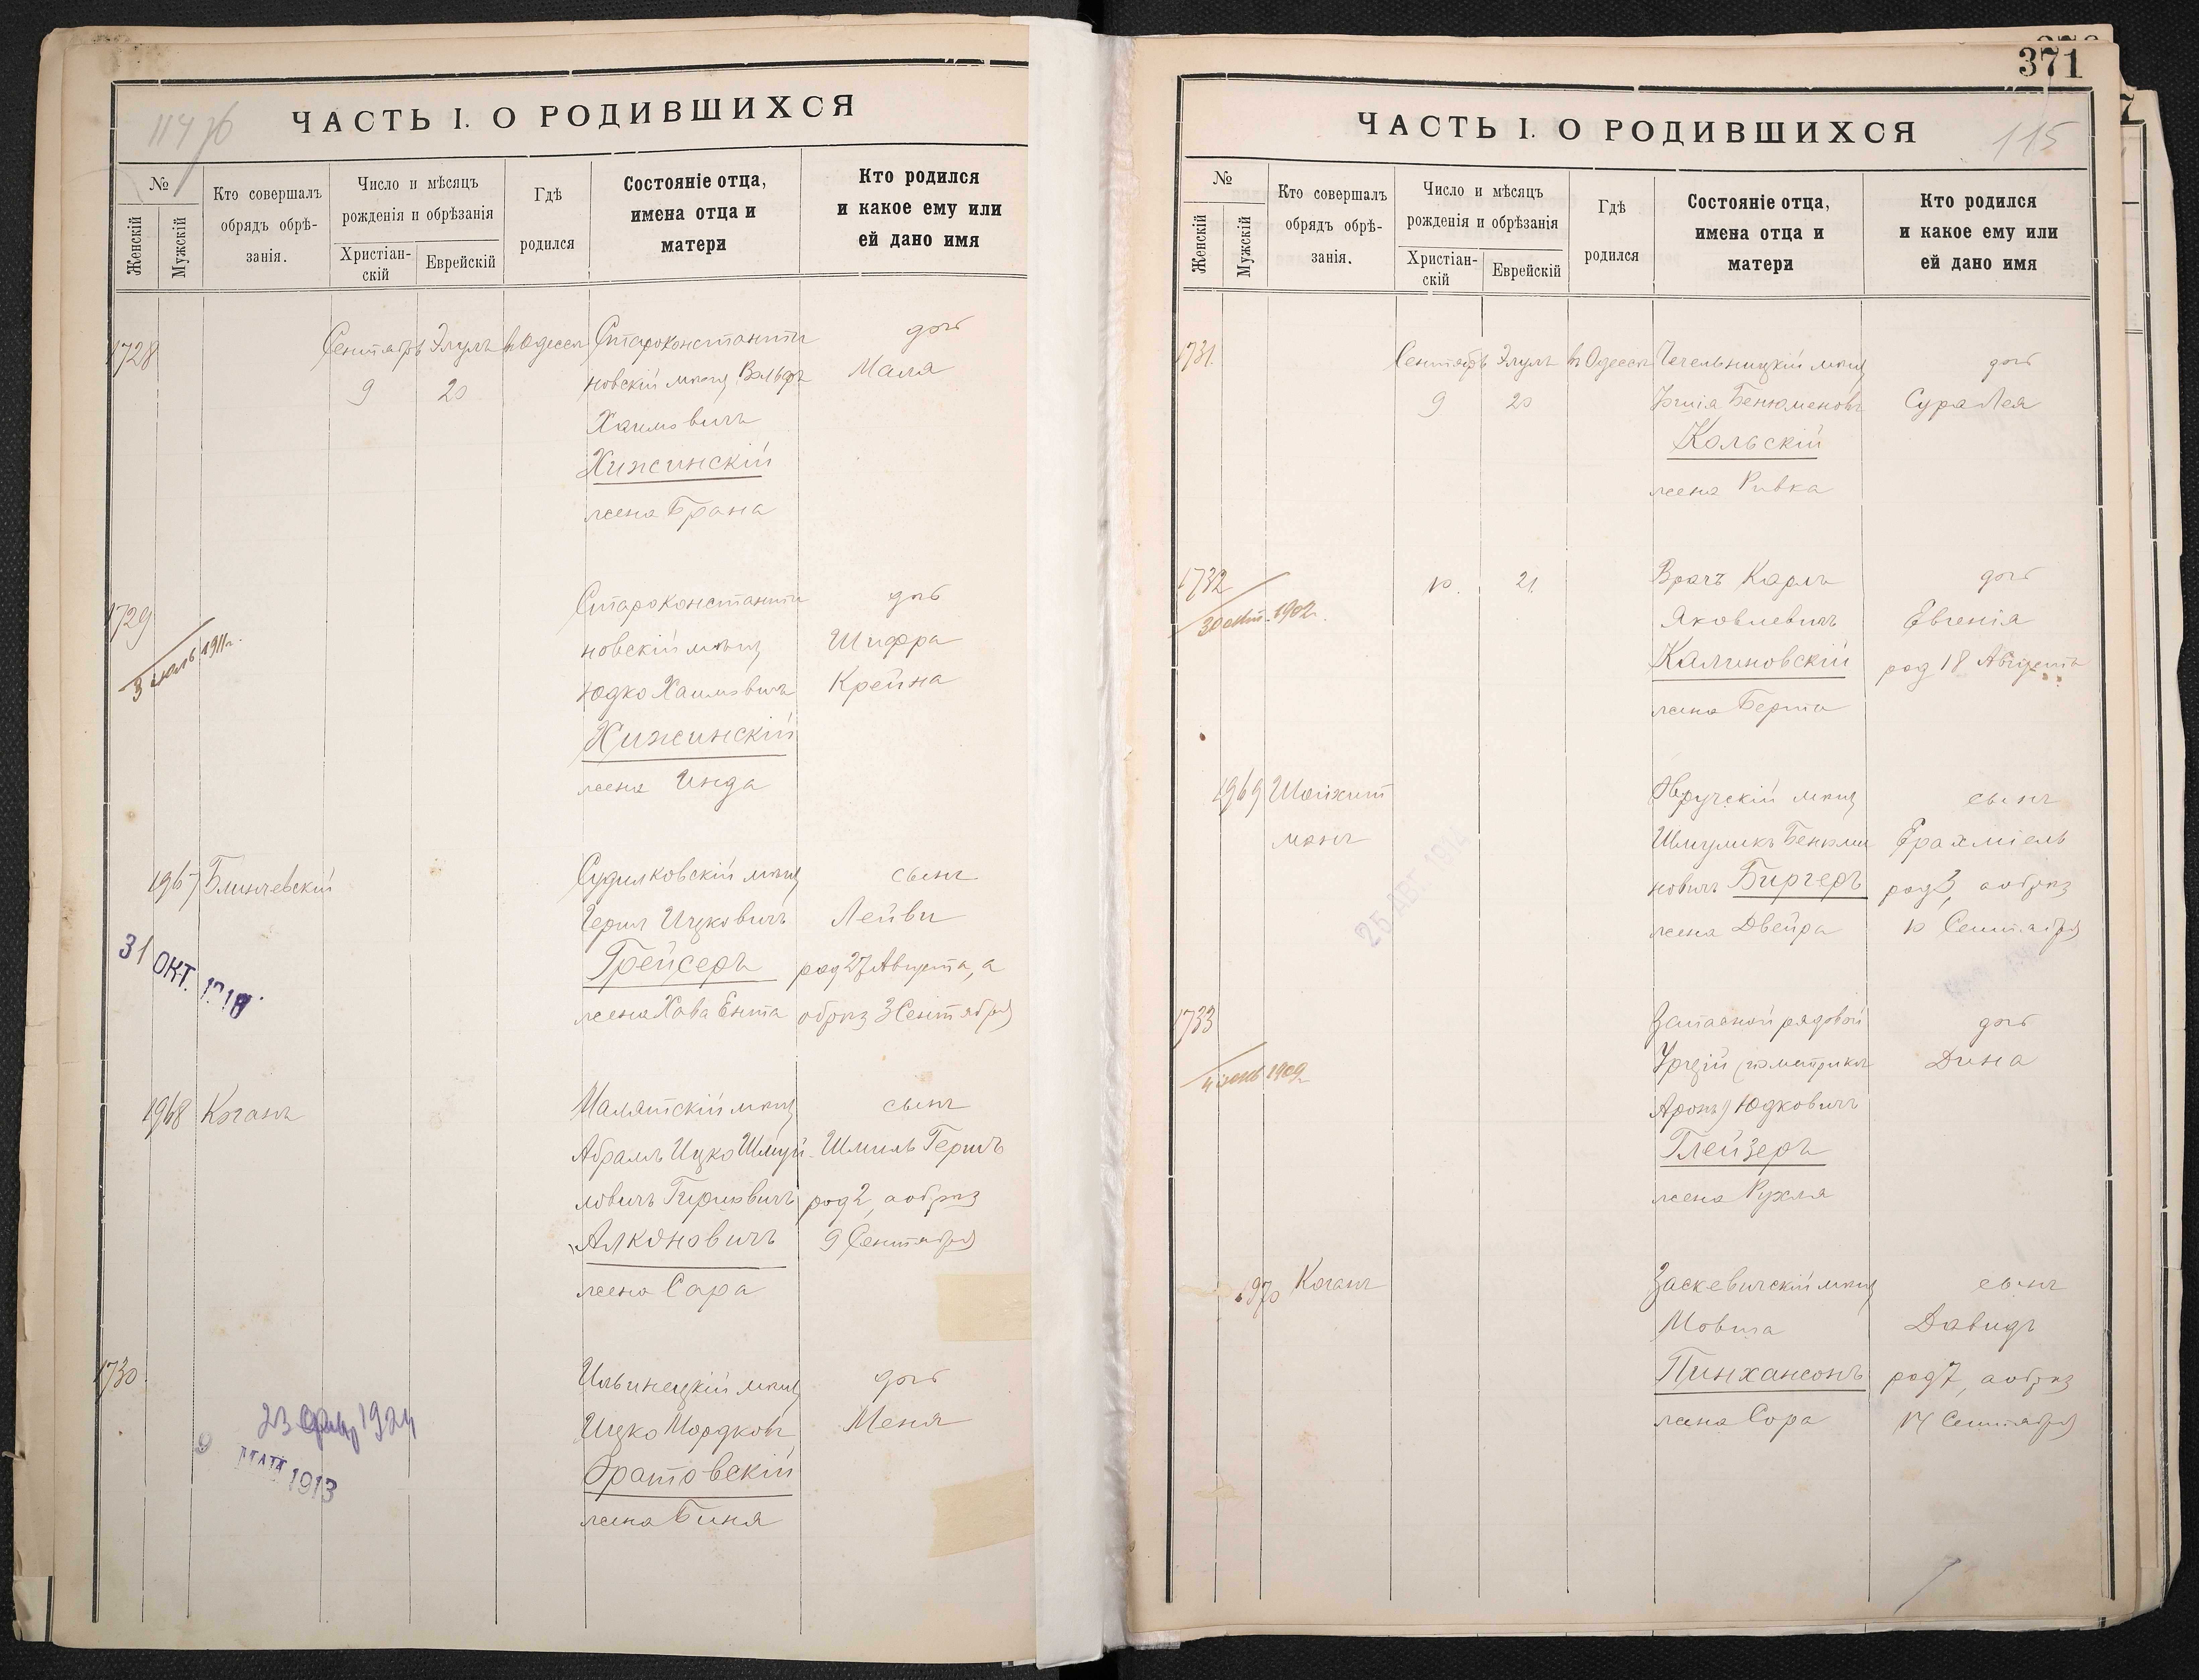 ЧАСТЬ I. О РОДИВШИХСЯ
№
Женскій
Мужскій
Кто совершалъ
обрядъ обрѣ-
занія.
Число и мѣсяцъ
рожденія и обрѣзанія
Христіан-
скій
Еврейскій
Гдѣ
родился
Состояніе отца,
имена отца и
матери
Кто родился
и какое ему или
ей дано имя
1728
Сентябрь Элулъ въ Одессѣ
9 20
Староконстанти
новскій мѣщ Вольфъ
Хаимовичъ
Хижинскій
жена Брана
дочь
Маля
1729
3 1911г.
Староконстанти
новскій мѣщ
Юдко Хаимовичъ
Хижинскій
жена Инда
дочь
Шифра
Крейна
1967 Блинчевскій
31 ОКТ.
Судилковскій мѣщ
Герш Ицковичъ
Грейсеръ
жена Хава Ента
сынъ
Лейви
род 27 Августа, а
обрѣз 3 Сентября
1968 Коганъ
Малятскій мѣщ
Абрамъ Ицко Шмуй
ловичъ
Алконовичъ
жена Сара
сынъ
Шмиль Гершъ
род 2, а обрѣз
9 Сентября
1730
23 1924
9 МАЙ 1913
Ильинецкій мѣщ
Ицко Мордков
Братовскій
жена Биня
дочь
Меня
371
ЧАСТЬ I. О РОДИВШИХСЯ
115
№
Женскій
Мужскій
Кто совершалъ
обрядъ обрѣ-
занія.
Число и мѣсяцъ
рожденія и обрѣзанія
Христіан-
скій
Еврейскій
Гдѣ
родился
Состояніе отца,
имена отца и
матери
Кто родился
и какое ему или
ей дано имя
1731
Сентябрь Элулъ въ Одессѣ
9 20
Чечельницкій мѣщ
Бенюменовъ
Кольскій
жена Ривка
дочь
Сура Лея
1732
30 1902г.
10. 21.
Врачъ Карлъ
Яковлевичъ
Калиновскій
жена Берта
дочь
Евгенія
род 18 Августа
1969 Шойхит
манъ
25 АВГ 1914
Овручскій мѣщ
Шмуликъ Бенюми
новичъ Биргеръ
жена Двейра
сынъ
Ерахміель
род 3, а обрѣз
10 Сентября
1733
4 1909
Запасной рядовой
(по метрикѣ
Аронъ) Юдковичъ
Глейзеръ
жена Рухля
дочь
Дина
1970 Коганъ
Заскевичскій мѣщ
Мовша
Пинхансонъ
жена Сора
сынъ
Давидъ
род 7, а обрѣз
14 Сентября